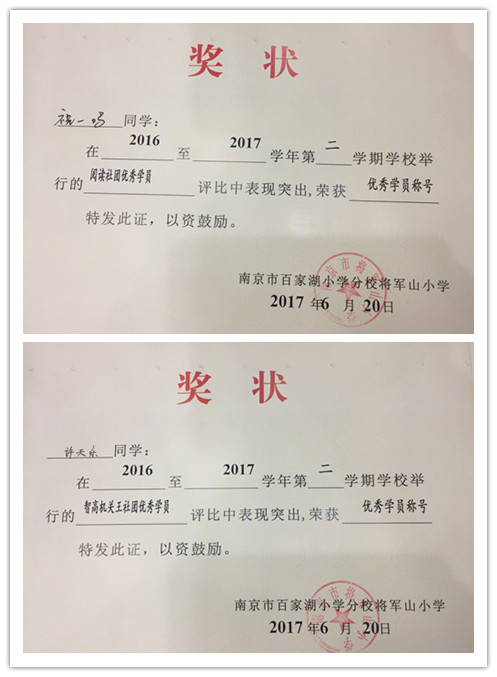 奖 状
祝一鸣同学:
在 2016 至 2017 学年第 二 学期学校举
行的 阅读社团优秀学员 评比中表现突出,荣获 优秀学员称号
特发此证，以资鼓励。
南京市百家湖小学分校将军山小学
2017 年6 月 20日
奖 状
许天乐同学:
在 2016 至 2017 学年第 二 学期学校举
行的 智高机关王社团优秀学员 评比中表现突出,荣获 优秀学员称号
特发此证，以资鼓励。
南京市百家湖小学分校将军山小学
2017 年6 月 20日